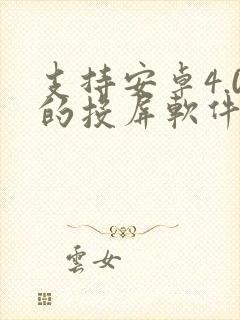 支持安卓4.0
的投屏軟件
雲女